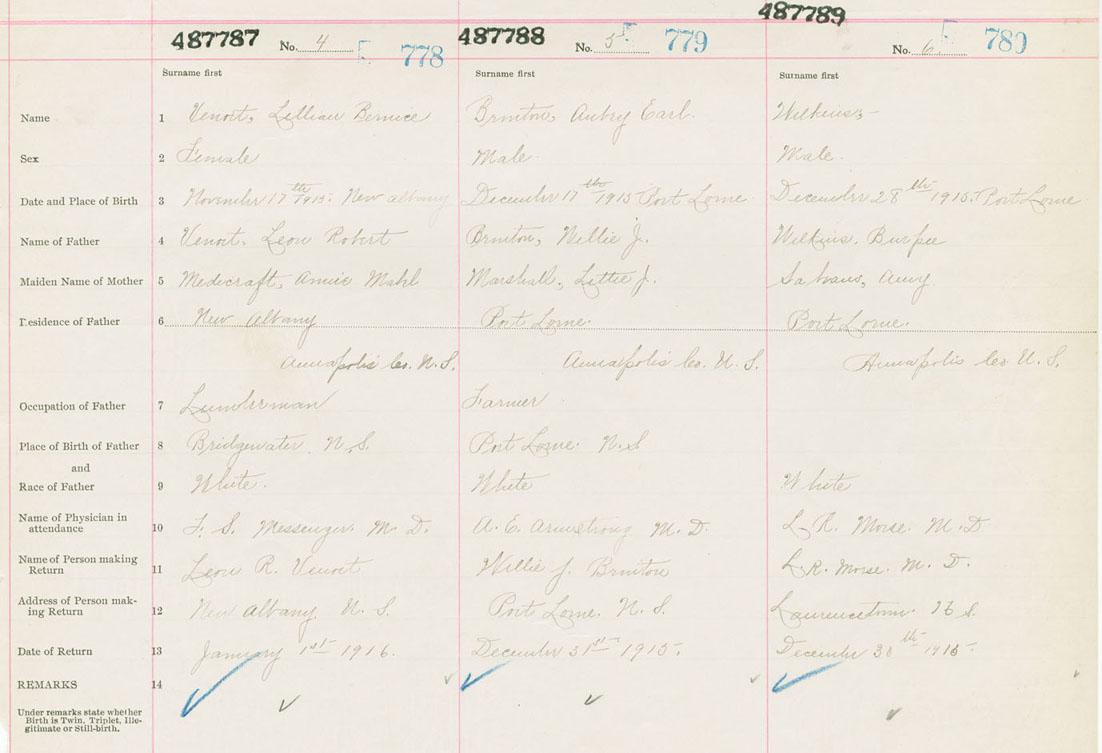 487787 No. 4 778 487788 No. 5 779 487789 No. 6 780
Surname first Surname first Surname first
Name 1 Venoit, Lillian Bernice Brinton, Aubry Earl. Wilkins,
Sex 2 Female Male. Male.
Date and Place of Birth 3 November 17th 1915. New Albany December 17th 1915 Port Lorne December 28th 1915. Port Lorne
Name of Father 4 Venoit, Leon Robert Brinton, Willie J. Wilkins, Burpee
Maiden Name of Mother 5 Medicraft, Annie Mahl Marshall, Lettie J. Amy
Residence of Father 6 New Albany Port Lorne. Port Lorne.
Annapolis Co. N.S. Annapolis Co. N.S. Annapolis Co N.S.
Occupation of Father 7 Lumberman Farmer
Place of Birth of Father 8 Bridgewater, N.S. Port Lorne N.S
and
Race of Father 9 White. White White
Name of Physician in
attendance 10 F. S. Messenger. M. D. A. E. Armstrong M. D. L. R. Morse. M. D
Name of Person making
Return 11 Leon R. Venoit Willie J. Brinton L. R. Morse. M. D.
Address of Person mak-
ing Return 12 New Albany N. S. Port Lorne. N. S. Laurencetown N S.
Date of Return 13 January 1st 1916. December 31st 1915. December 30th 1915.
REMARKS 14
Under remarks state whether
Birth is Twin, Triplet, Ille-
gitimate or Still-birth.